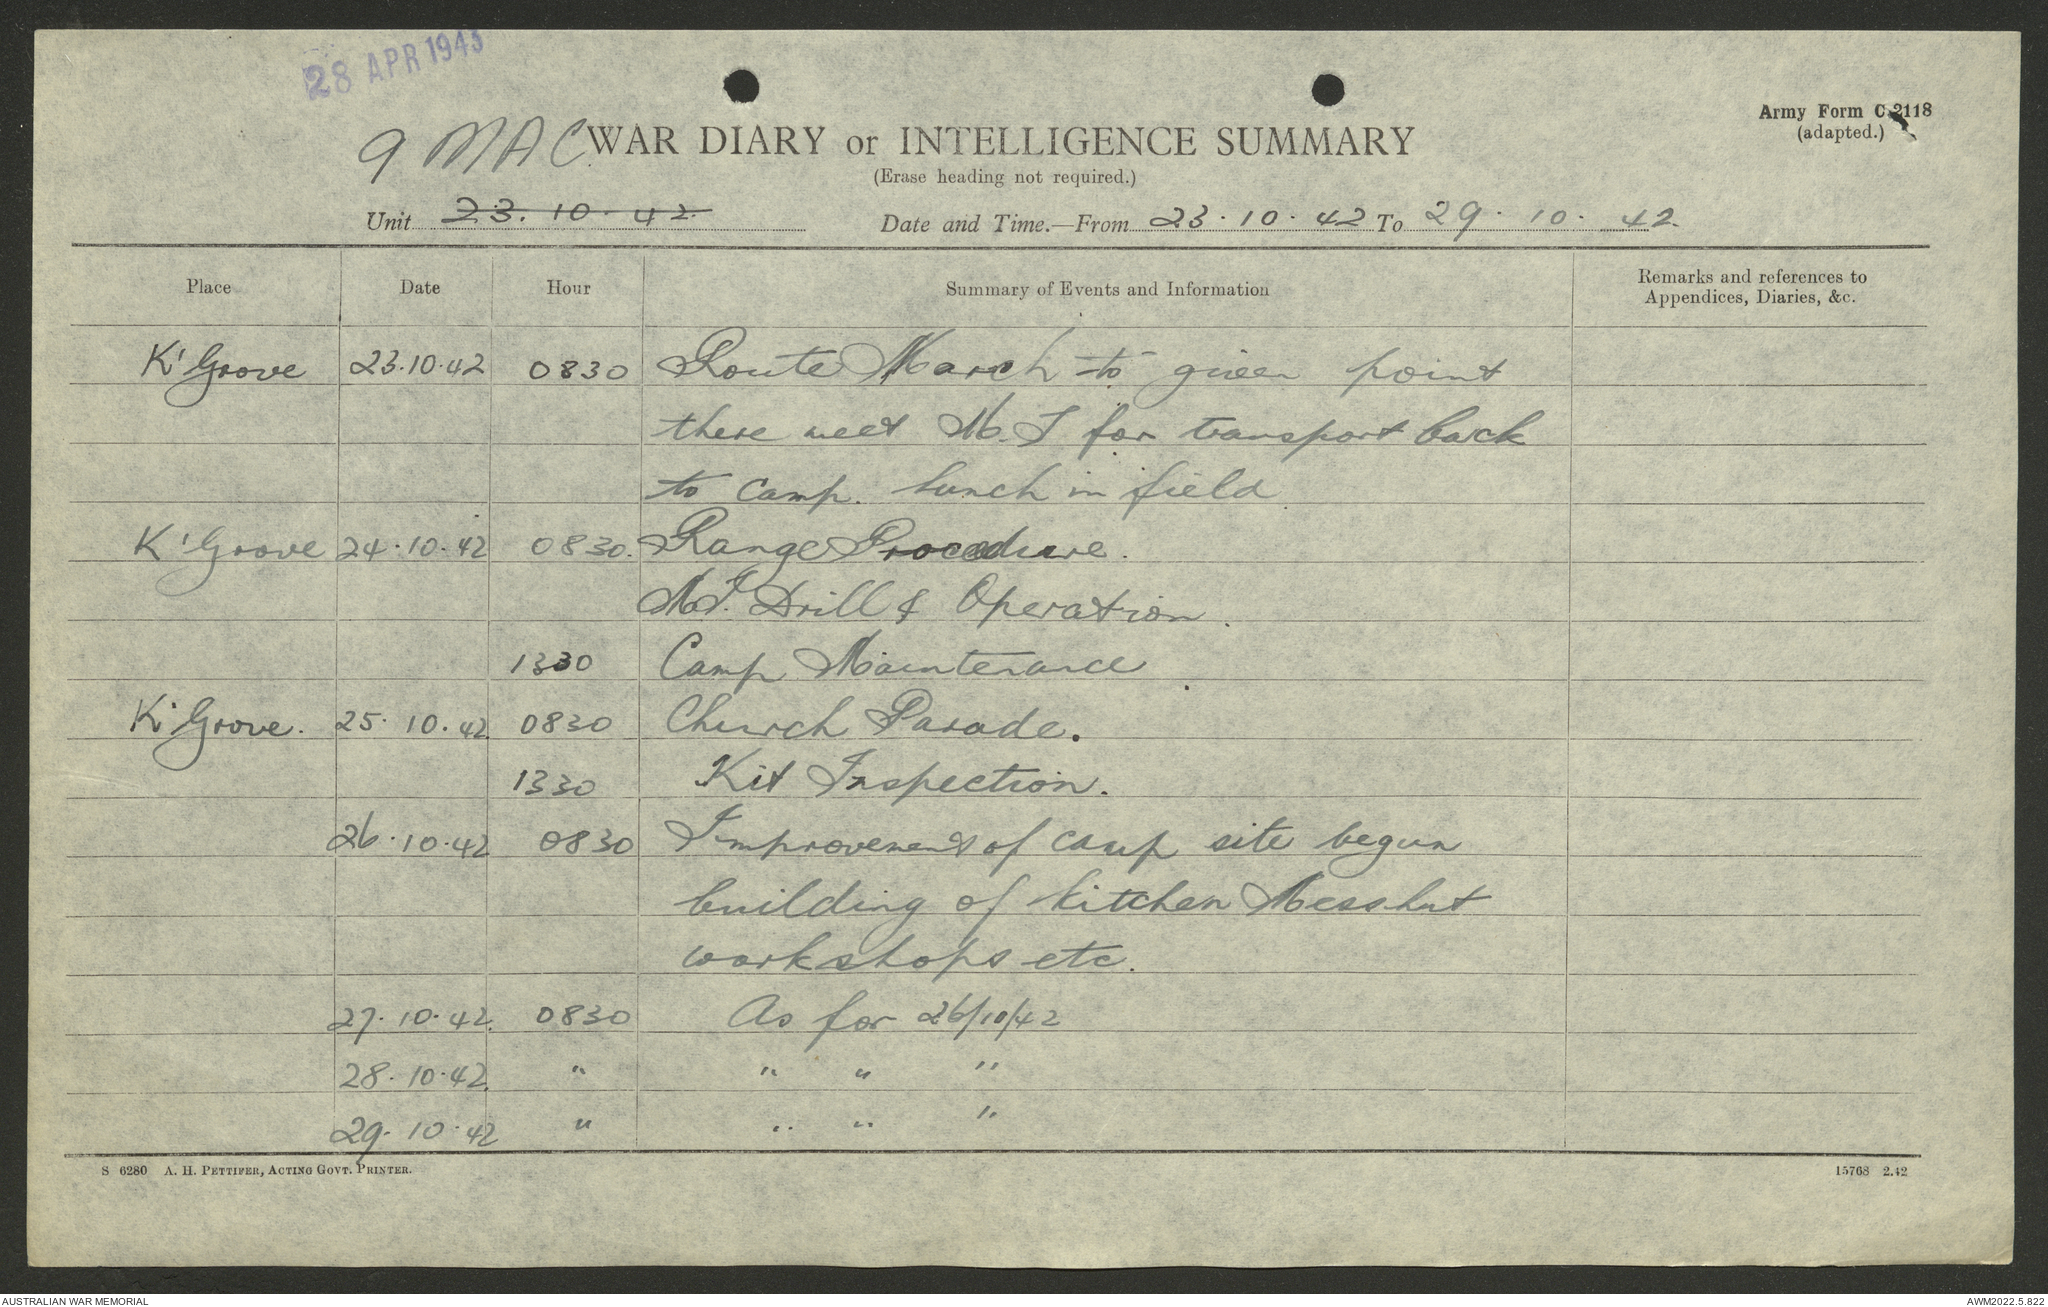 28 APR 1943
Army Form C.2118
(adapted.)
9 MAC WAR DIARY or INTELLIGENCE SUMMARY
(Erase heading not required.)
Unit 23.10.42 Date and Time.—From 23.10.42 To 29.10.42.
Place Date Hour Summary of Events and Information Remarks and references to
Appendices, Diaries, &c.
K'Grove 23.10.42 0830 Route March to given point
there meet M.T for transport back
to camp. lunch in field
K'Grove 24.10.42 0830. Range Procedure.
M.T. Drill & Operation.
1330 Camp Maintenance
K'Grove. 25.10.42 0830 Church Parade.
1330 Kit Inspection.
26.10.42 0830 Improvement of camp site begun
building of kitchen Messhut
workshops etc.
27.10.42. 0830 As for 26/10/42
28.10.42. " " " "
29.10.42 " " " "
S 6280 A. H. PETTIFER, ACTING GOVT. PRINTER. 15768 2.42
AUSTRALIAN WAR MEMORIAL AWM2022.5.822